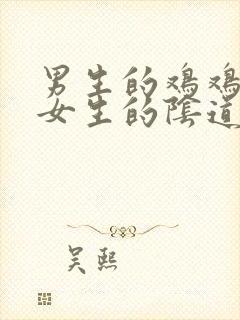 男生的鸡鸡
女生的陰道
吴熙